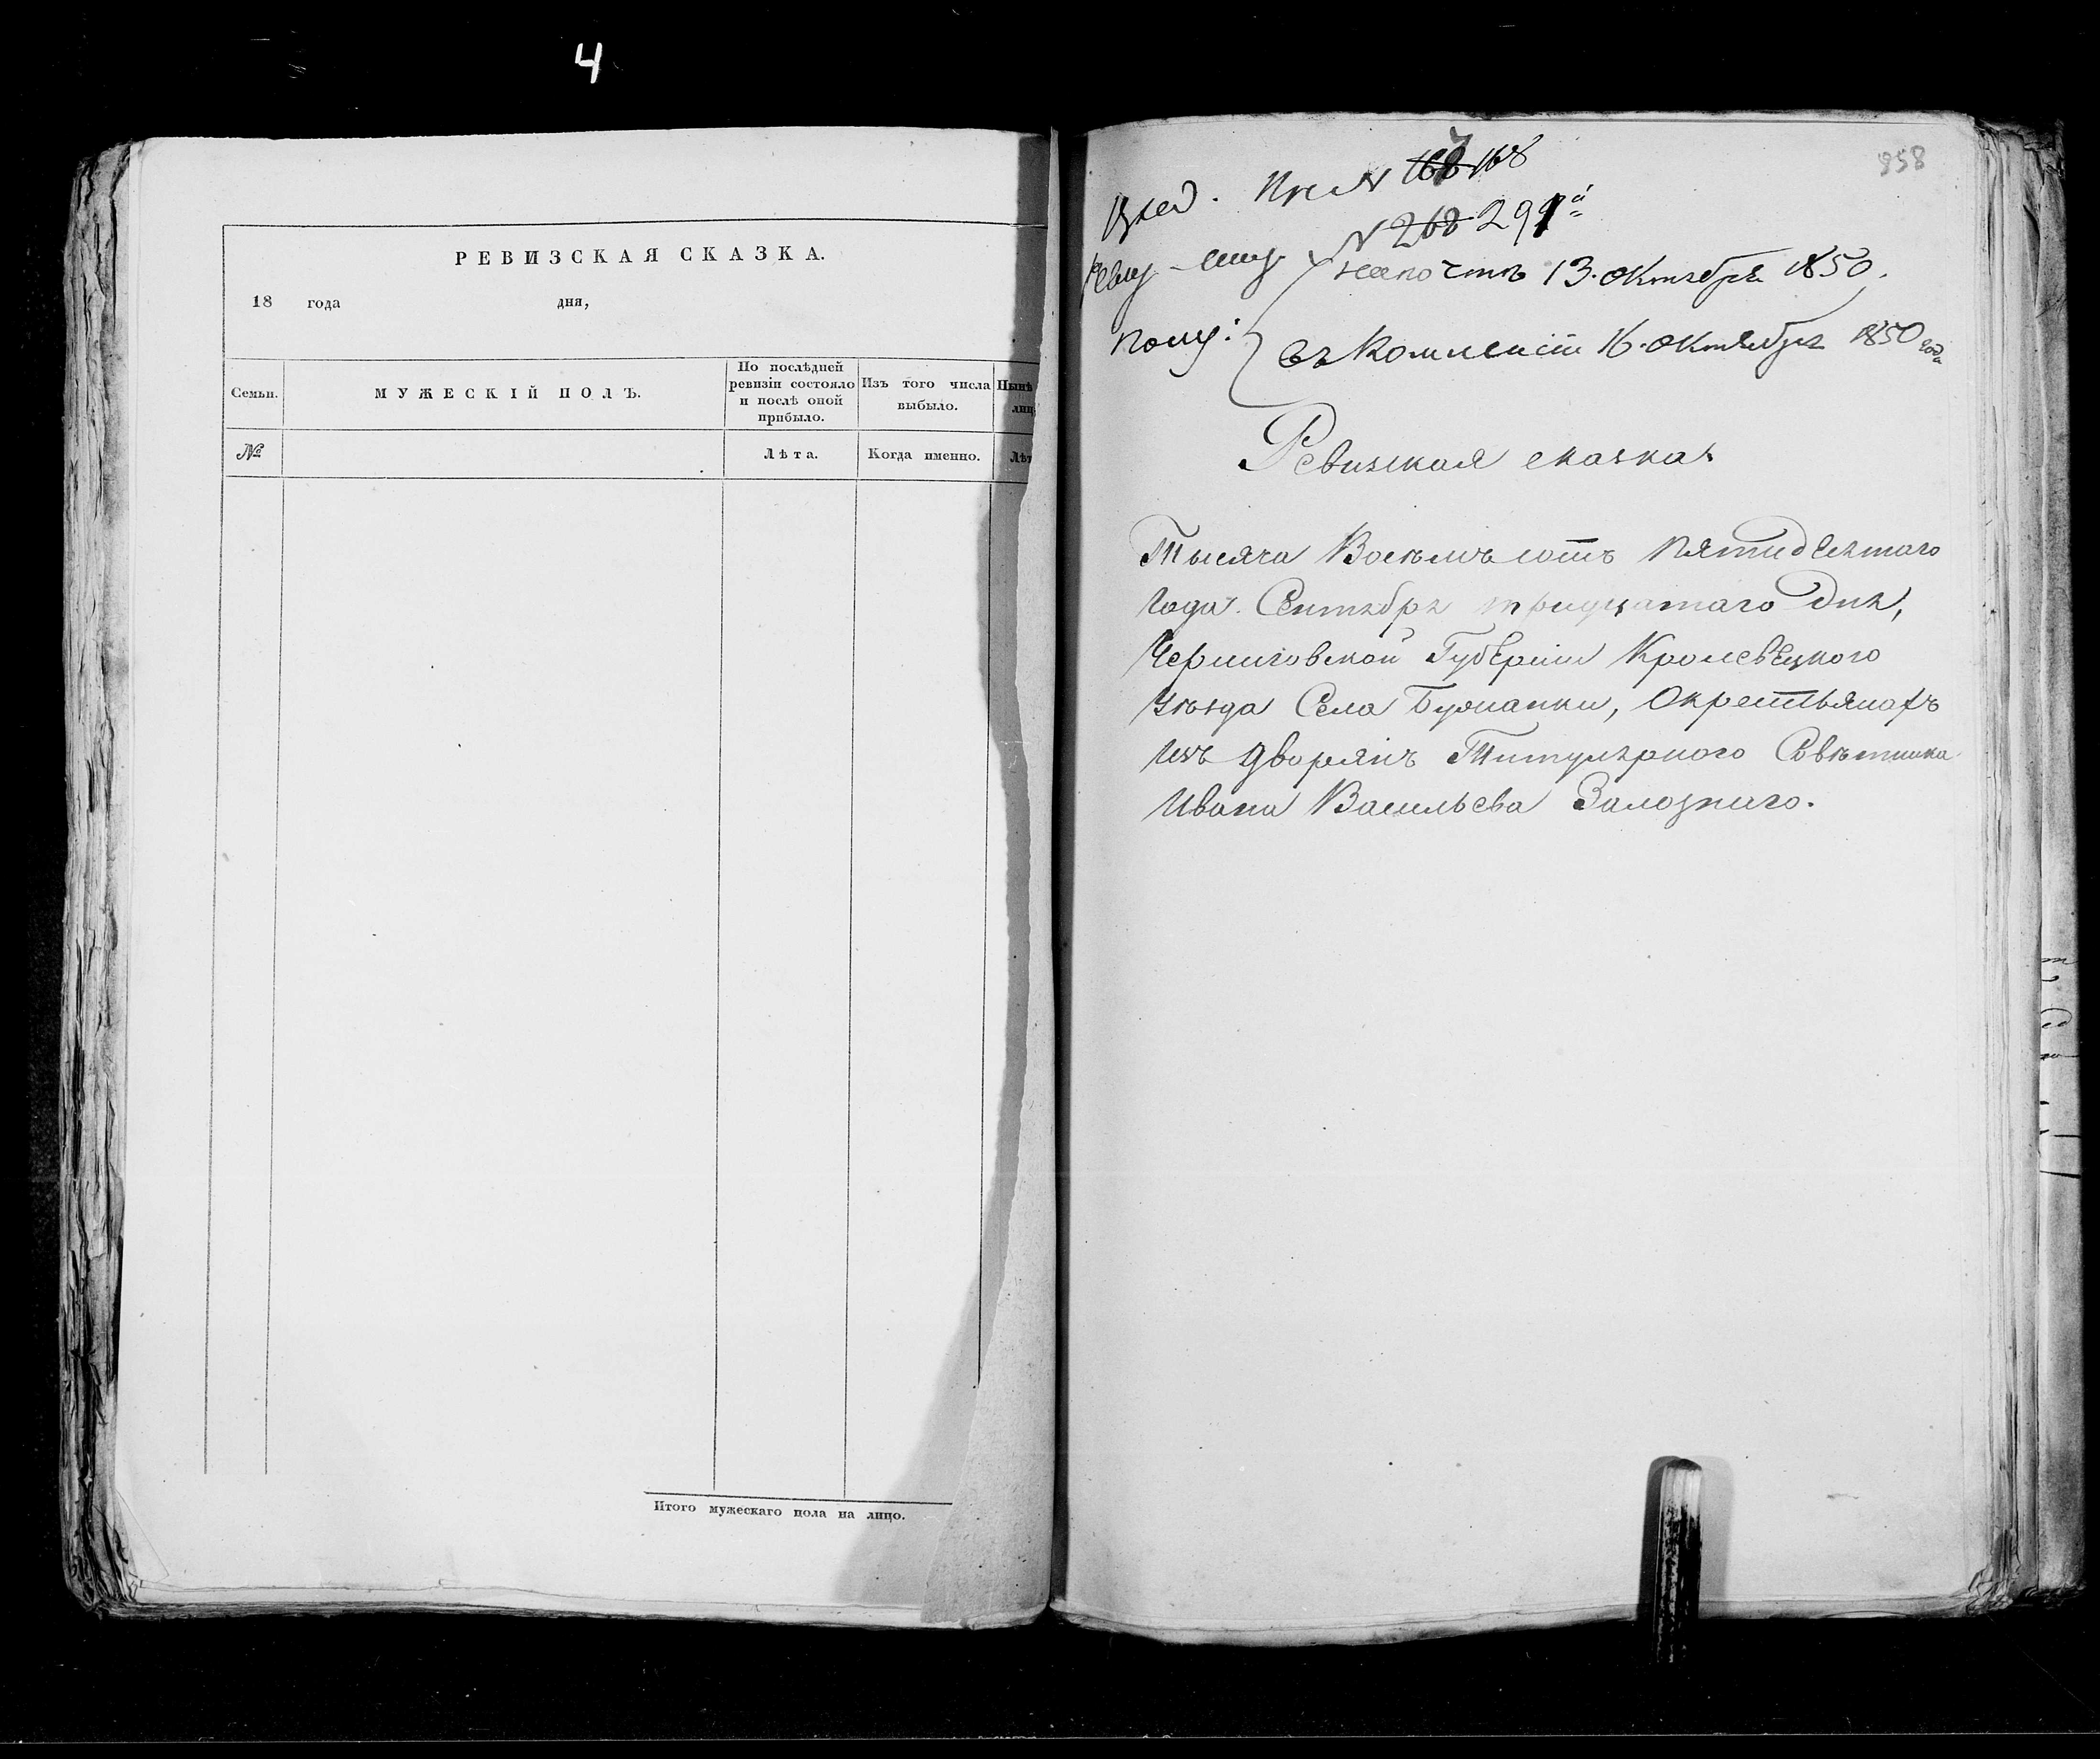 4
РЕВИЗСКАЯ СКАЗКА.
18 года дня,
Семьи.
МУЖЕСКІЙ ПОЛЪ.
По послѣдней
ревизіи состояло
и послѣ оной
прибыло.
Изъ того числа
выбыло.
№
Лѣта.
Когда именно.
Итого мужескаго пола на лицо.
858
168
№ 268 291й
на почтѣ 13. Октября 1850.
Полу:
въ Комисіи 16. Октября 1850 года
Ревизская сказка
Тысяча Восемь сотъ Пятидесятаго
Года. Сентября тридцатаго Дня,
Черниговской Губерніи Кролевецкого
Уѣзда Села о крестьянахъ
изъ Дворянъ Титулярного Совѣтника
Ивана Васильева